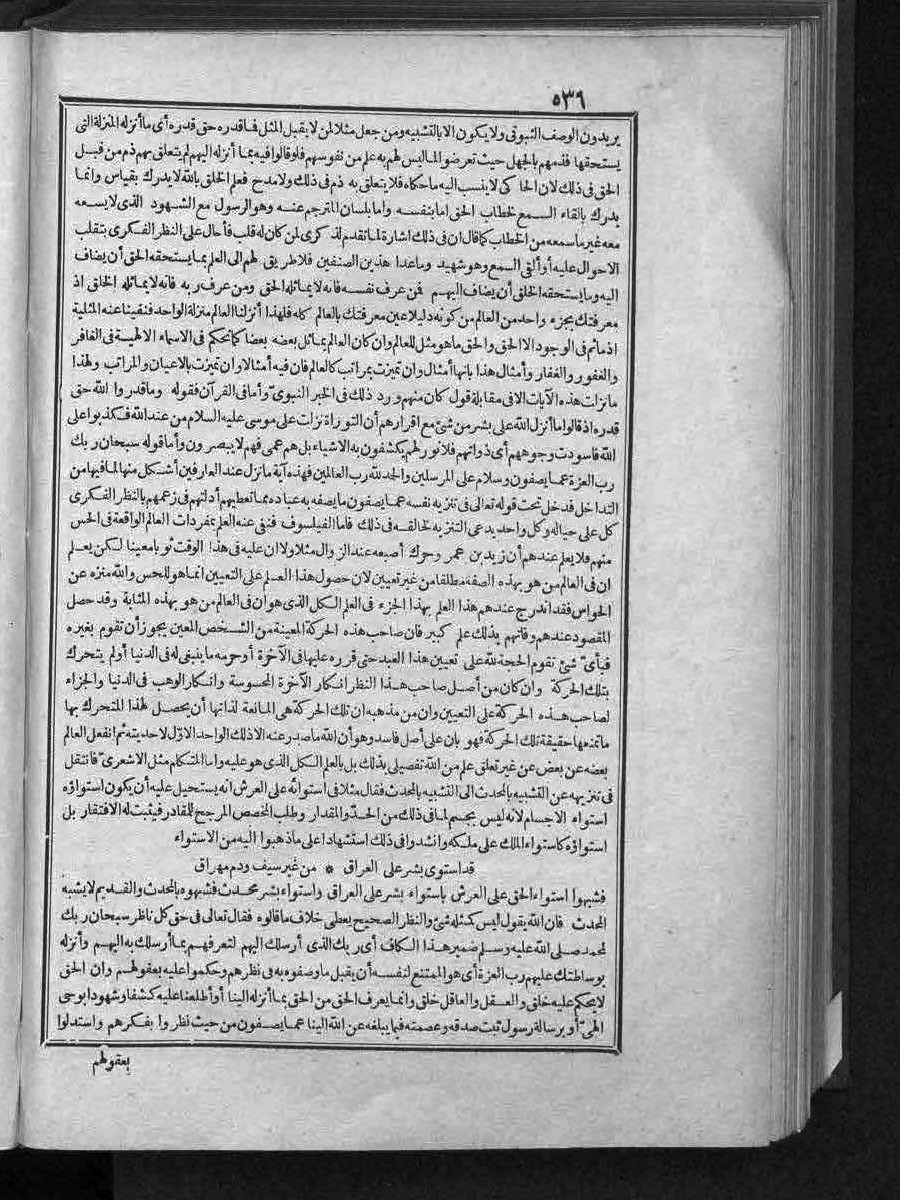 ٥٣٦
يريدون الوصف الثبوتى ولا يكون الا بالتشبيه ومن جعل مثلا لمن لا يقبل المثل فما قدره حق قدره أى ما أنزله المنزلة التى
يستحقها فذمهم بالجهل حيث تعرضوا لما ليس لهم به علم من نفوسهم فلو قالوا فيه بما أنزله اليهم لم يتعلق بهم ذم من قبل
الحق فى ذلك لان الحاكى لا ينسب اليه ما حكاه فلا يتعلق به ذم فى ذلك ولا مدح فعلم الخلق بالله لا يدرك بقياس وانما
يدرك بالقاء السمع لخطاب الحق اما بنفسه واما بلسان المترجم عنه وهو الرسول مع الشهود الذى لا يسعه
معه غير ما سمعه من الخطاب كما قال ان فى ذلك اشارة لما تقدم لذكرى لمن كان له قلب فأحال على النظر الفكرى بتقلب
الاحوال عليه أو ألقى السمع وهو شهيد وما عدا هذين الصنفين فلا طريق لهم الى العلم بما يستحقه الحق أن يضاف
اليه وما يستحقه الخلق أن يضاف اليهم فمن عرف نفسه فانه لا يماثله الحق ومن عرف ربه فانه لا يماثله الخلق اذ
معرفتك بجزء واحد من العالم من كونه دليلا عين معرفتك بالعالم كله فلهذا أنزلنا العالم منزلة الواحد فنفينا عنه المثلية
اذ ما ثم فى الوجود الا الحق والحق ما هو مثل للعالم وان كان العالم يماثل بعضه بعضا كما تحكم فى الاسماء الالهية فى الغافر
والغفور والغفار وأمثال هذا بانها أمثال وان تميزت بمراتب كالعالم فان فيه أمثالا وان تميزت بالاعيان والمراتب ولهذا
ما نزلت هذه الآيات الا فى مقابلة قول كان منهم ورد ذلك فى الخبر النبوى وأما فى القرآن فقوله وما قدروا الله حق
قدره اذ قالوا ما أنزل الله على بشر من شئ مع اقرارهم أن التوراة نزلت على موسى عليه السلام من عند الله فكذبوا على
الله فاسودت وجوههم أى ذواتهم فلا نور لهم يكشفون به الاشياء بل هم عمى فهم لا يبصرون وأما قوله سبحان ربك
رب العزة عما يصفون وسلام على المرسلين والحمد لله رب العالمين فهذه آية ما نزل عند العارفين أشكل منها لما فيها من
التداخل فدخل تحت قوله تعالى فى تنزيه نفسه عما يصفون ما يصفه به عباده مما تعطيهم أدلتهم فى زعمهم بالنظر الفكرى
كل على حياله وكل واحد يدعى التنزيه لخالقه فى ذلك فاما الفيلسوف فنفى عنه العلم بمفردات العالم الواقعة فى الحس
منهم فلا يعلم عندهم أن زيد بن عمر وحرك أصبعه عند الزوال مثلا ولا ان عليه فى هذا الوقت ثوبا معينا لكن يعلم
ان فى العالم من هو بهذه الصفة مطلقا من غير تعيين لان حصول هذا العلم على التعيين انما هو للحس والله منزه عن
الحواس فقد اندرج عندهم هذا العلم بهذا الجزء فى العلم الكل الذى هو ان فى العالم من هو بهذه المثابة وقد حصل
المقصود عندهم وفاتهم بذلك علم كبير فان صاحب هذه الحركة المعينة من الشخص المعين يجوز أن تقوم بغيره
فبأى شئ تقوم الحجة لله على تعيين هذا العبد حتى قرره عليها فى الآخرة أو حرمه ما ينبغى له فى الدنيا أو لم يتحرك
بتلك الحركة وان كان من أصل صاحب هذا النظر انكار الآخرة المحسوسة وانكار الوهب فى الدنيا والجزاء
لصاحب هذه الحركة على التعيين وان من مذهبه ان تلك الحركة هى المانعة لذاتها أن يحصل لهذا المتحرك بها
ما تمنعها حقيقة تلك الحركة فهو بان على أصل فاسد وهو أن الله ما صدر عنه الا ذلك الواحد الاوّل لاحديته ثم انفعل العالم
بعضه عن بعض عن غير تعلق علم من الله تفصيلى بذلك بل بالعلم الكل الذى هو عليه واما المتكلم مثل الاشعرى فانتقل
فى تنزيهه عن التشبيه بالمحدث الى التشبيه بالمحدث فقال مثلا فى استوائه على العرش انه يستحيل عليه أن يكون استواؤه
استواء الاجسام لانه ليس بجسم لما فى ذلك من الحدّ والمقدار وطلب المخصص المرجح للمقادر فيثبت له الافتقار بل
استواؤه كاستواء الملك على ملكه وانشدوا فى ذلك استشهادا على ما ذهبوا اليه من الاستواء
قد استوى بشر على العراق * من غير سيف ودم مهراق
فشبهوا استواء الحق على العرش باستواء بشر على العراق واستواء بشر محدث فشبهوه بالمحدث والقديم لا يشبه
المحدث فان الله يقول ليس كمثله شئ والنظر الصحيح يعطى خلاف ما قالوه فقال تعالى فى حق كل ناظر سبحان ربك
لمحمد صلى الله عليه وسلم ضمير هذا الكاف أى ربك الذى أرسلك اليهم لتعرفهم بما أرسلك به اليهم وأنزله
بوساطتك عليهم رب العزة أى هو الممتنع لنفسه أن يقبل ما وصفوه به فى نظرهم وحكموا عليه بعقولهم وان الحق
لا يحكم عليه خلق والعقل والعاقل خلق وانما يعرف الحق من الحق بما أنزله الينا أو أطلعنا عليه كشفا وشهودا بوحى
الهىّ أو برسالة رسول ثبت صدقه وعصمته فيما يبلغه عن الله الينا عما يصفون من حيث نظروا بفكرهم واستدلوا
بعقولهم